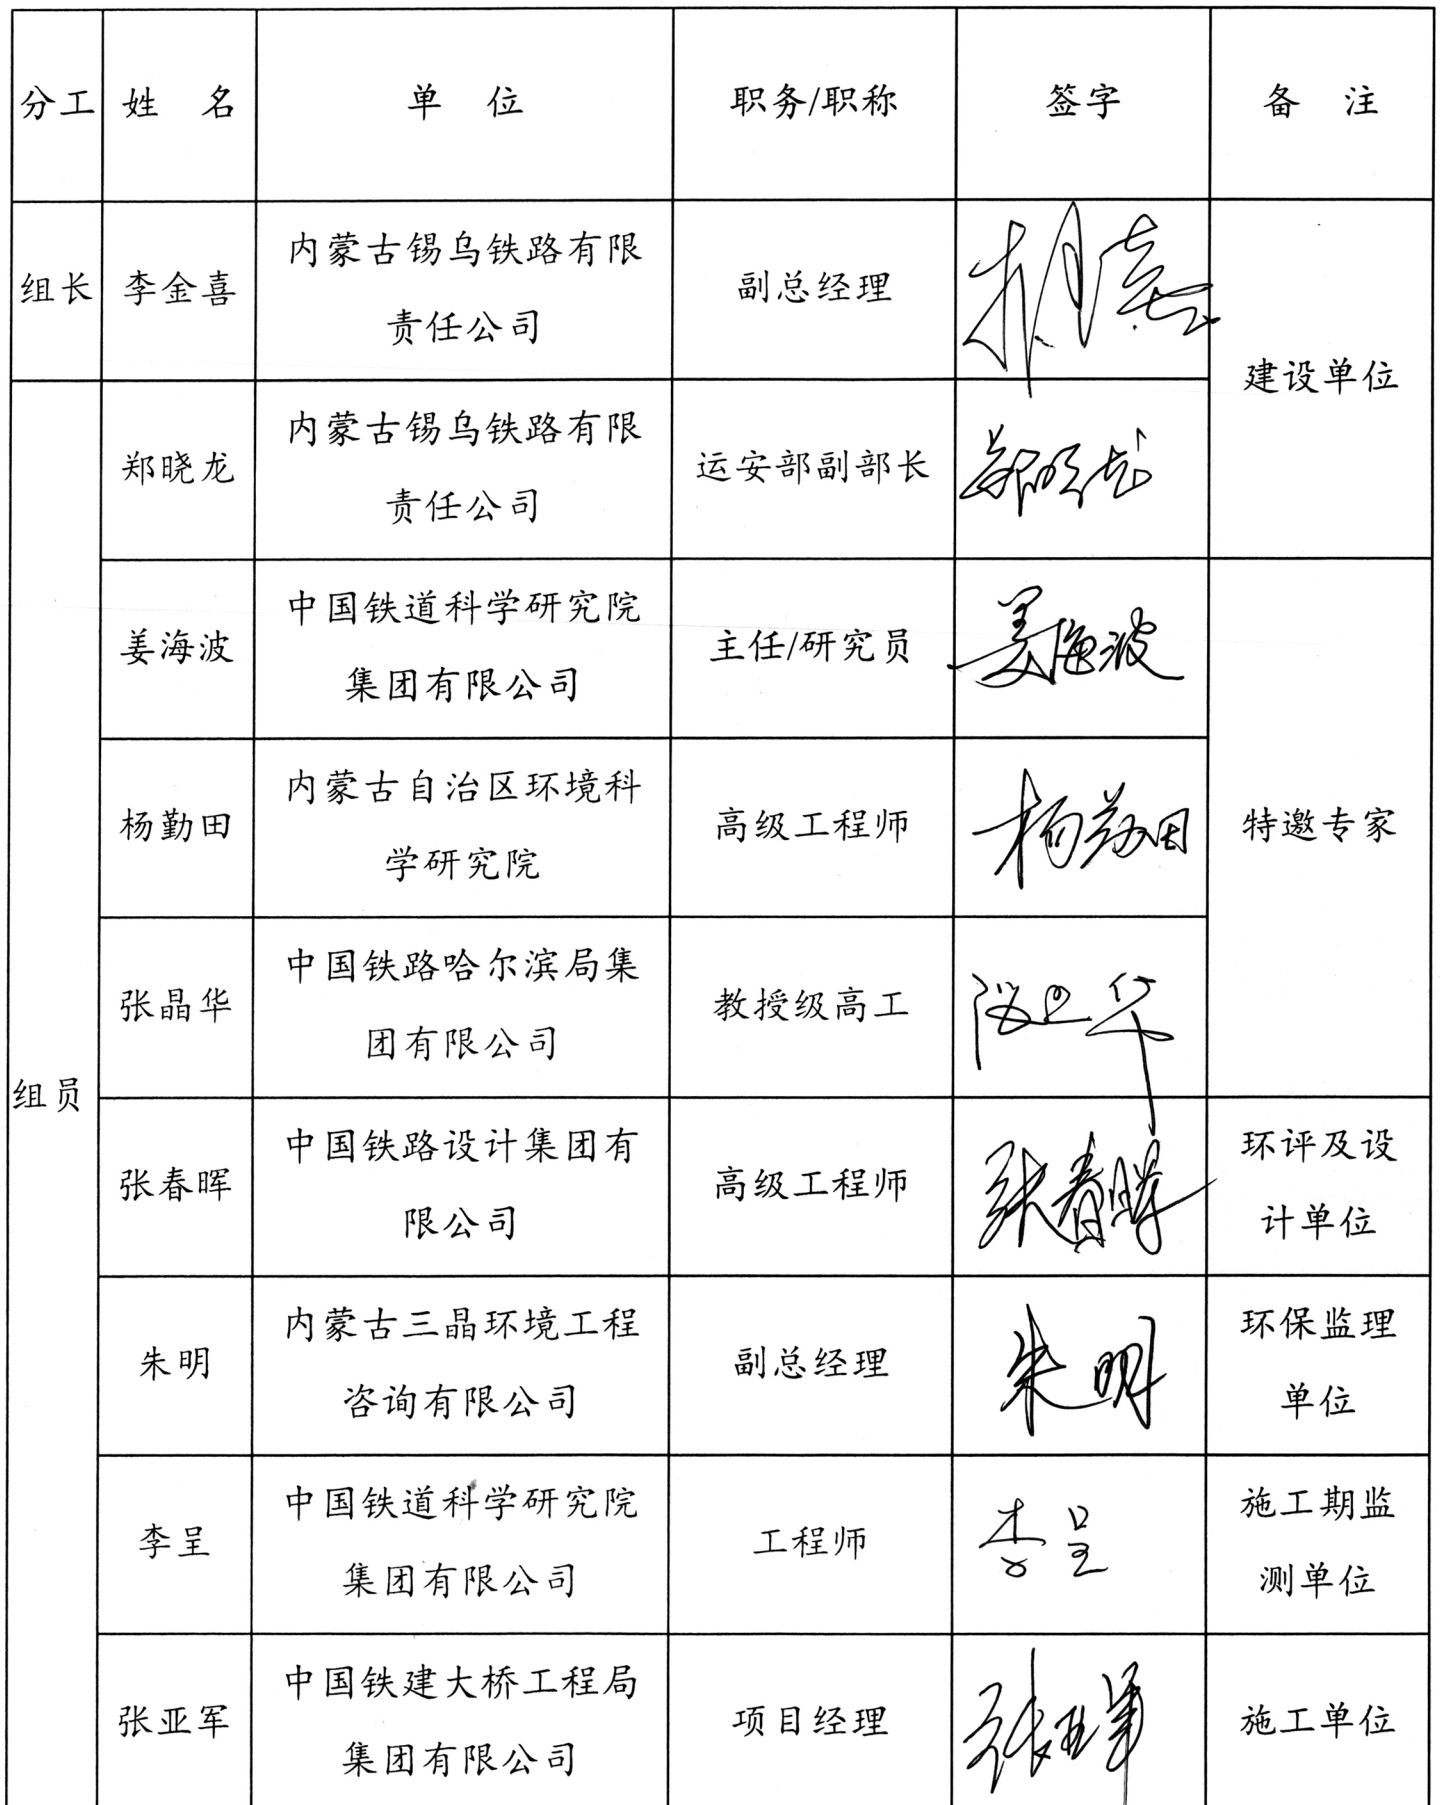 分工 姓 名 单 位 职务/职称 签字 备 注
组长 李金喜 内蒙古锡乌铁路有限
责任公司 副总经理
建设单位
郑晓龙 内蒙古锡乌铁路有限
责任公司 运安部副部长 郑晓龙
姜海波 中国铁道科学研究院
集团有限公司 主任/研究员 姜海波
杨勤田 内蒙古自治区环境科
学研究院 高级工程师 杨勤田
特邀专家
张晶华 中国铁路哈尔滨局集
团有限公司 教授级高工
组员
张春晖 中国铁路设计集团有
限公司 高级工程师 张春晖 环评及设
计单位
朱明 内蒙古三晶环境工程
咨询有限公司 副总经理 朱明 环保监理
单位
李呈 中国铁道科学研究院
集团有限公司 工程师 李呈 施工期监
测单位
张亚军 中国铁建大桥工程局
集团有限公司 项目经理 张亚军 施工单位